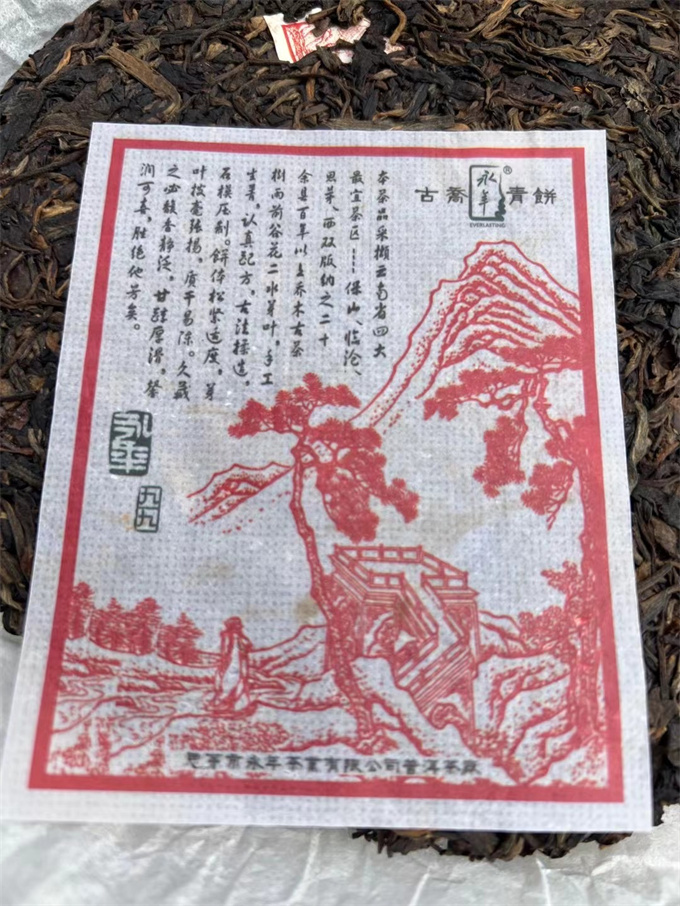 古喬 永年® 青餅
EVERLASTING
本茶品采撷云南省四大
最宜茶区---保山、临沧、
思茅、西双版纳之二十
余县百年以上乔木古茶
树雨前谷花二水芽叶,手工
生青,认真配方,古法揉造,
石模压制。饼体松紧适度,芽
叶披毫张扬,质干易除。久藏
之必馥香静泛,甘醇厚滑,餐
润可喜,胜绝他芳矣。
永年
九九
思茅市永年茶業有限公司普洱茶厰